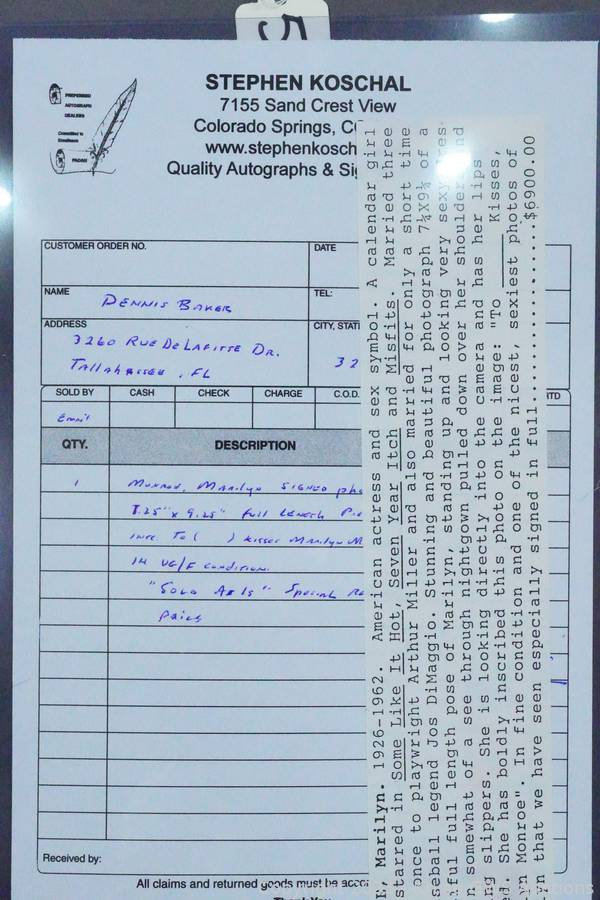 5
PROFESSIONAL
AUTOGRAPH
DEALERS
Committed to
Excellence
PADA
STEPHEN KOSCHAL
7155 Sand Crest View
Colorado Springs, C
www.stephenkosch
Quality Autographs & Si
CUSTOMER ORDER NO.
DATE
NAME
DENNIS BAKER
TEL:
ADDRESS
3260 RUE DE LAFITTE DR.
TallaHassee, FL
CITY, STAT
32
SOLD BY CASH CHECK CHARGE C.O.D. RTD
Email
QTY. DESCRIPTION
1 Monroe, Marilyn SIGNED pho
7.25" x 9.25" full LENGTH Pic
To ( ) kisses Marilyn M
IN VG/F condition.
"Sold As Is" Special
Price
Received by:
All claims and returned goods must be acco
Thank You
E, Marilyn. 1926-1962. American actress and sex symbol. A calendar girl
starred in Some Like It Hot, Seven Year Itch and Misfits. Married three
once to playwright Arthur Miller and also married for only a short time
seball legend Jos DiMaggio. Stunning and beautiful photograph 7¼X9¼ of a
ful full length pose of Marilyn, standing up and looking very sexy dres-
n somewhat of a see through nightgown pulled down over her shoulder and
ng slippers. She is looking directly into the camera and has her lips
. She has boldly inscribed this photo on the image: "To ____ Kisses,
n Monroe". In fine condition and one of the nicest, sexiest photos of
n that we have seen especially signed in full....................$6900.00